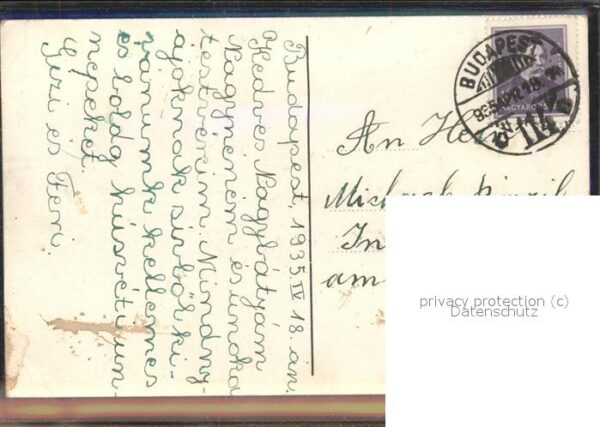 Budapest, 1935 IV 18. án.
Kedves Nagybátyám
Nagynéném és unoka
testvéreim. Mindny-
ájoknak sirbőr ki-
vánunk kellemes
es boldg húsvéti ün-
nepeket.
Gizi es Feri.
BUDAPEST
MAGYARORSZÁG
An
Michael
In
am
privacy protection (c)
Datenschutz